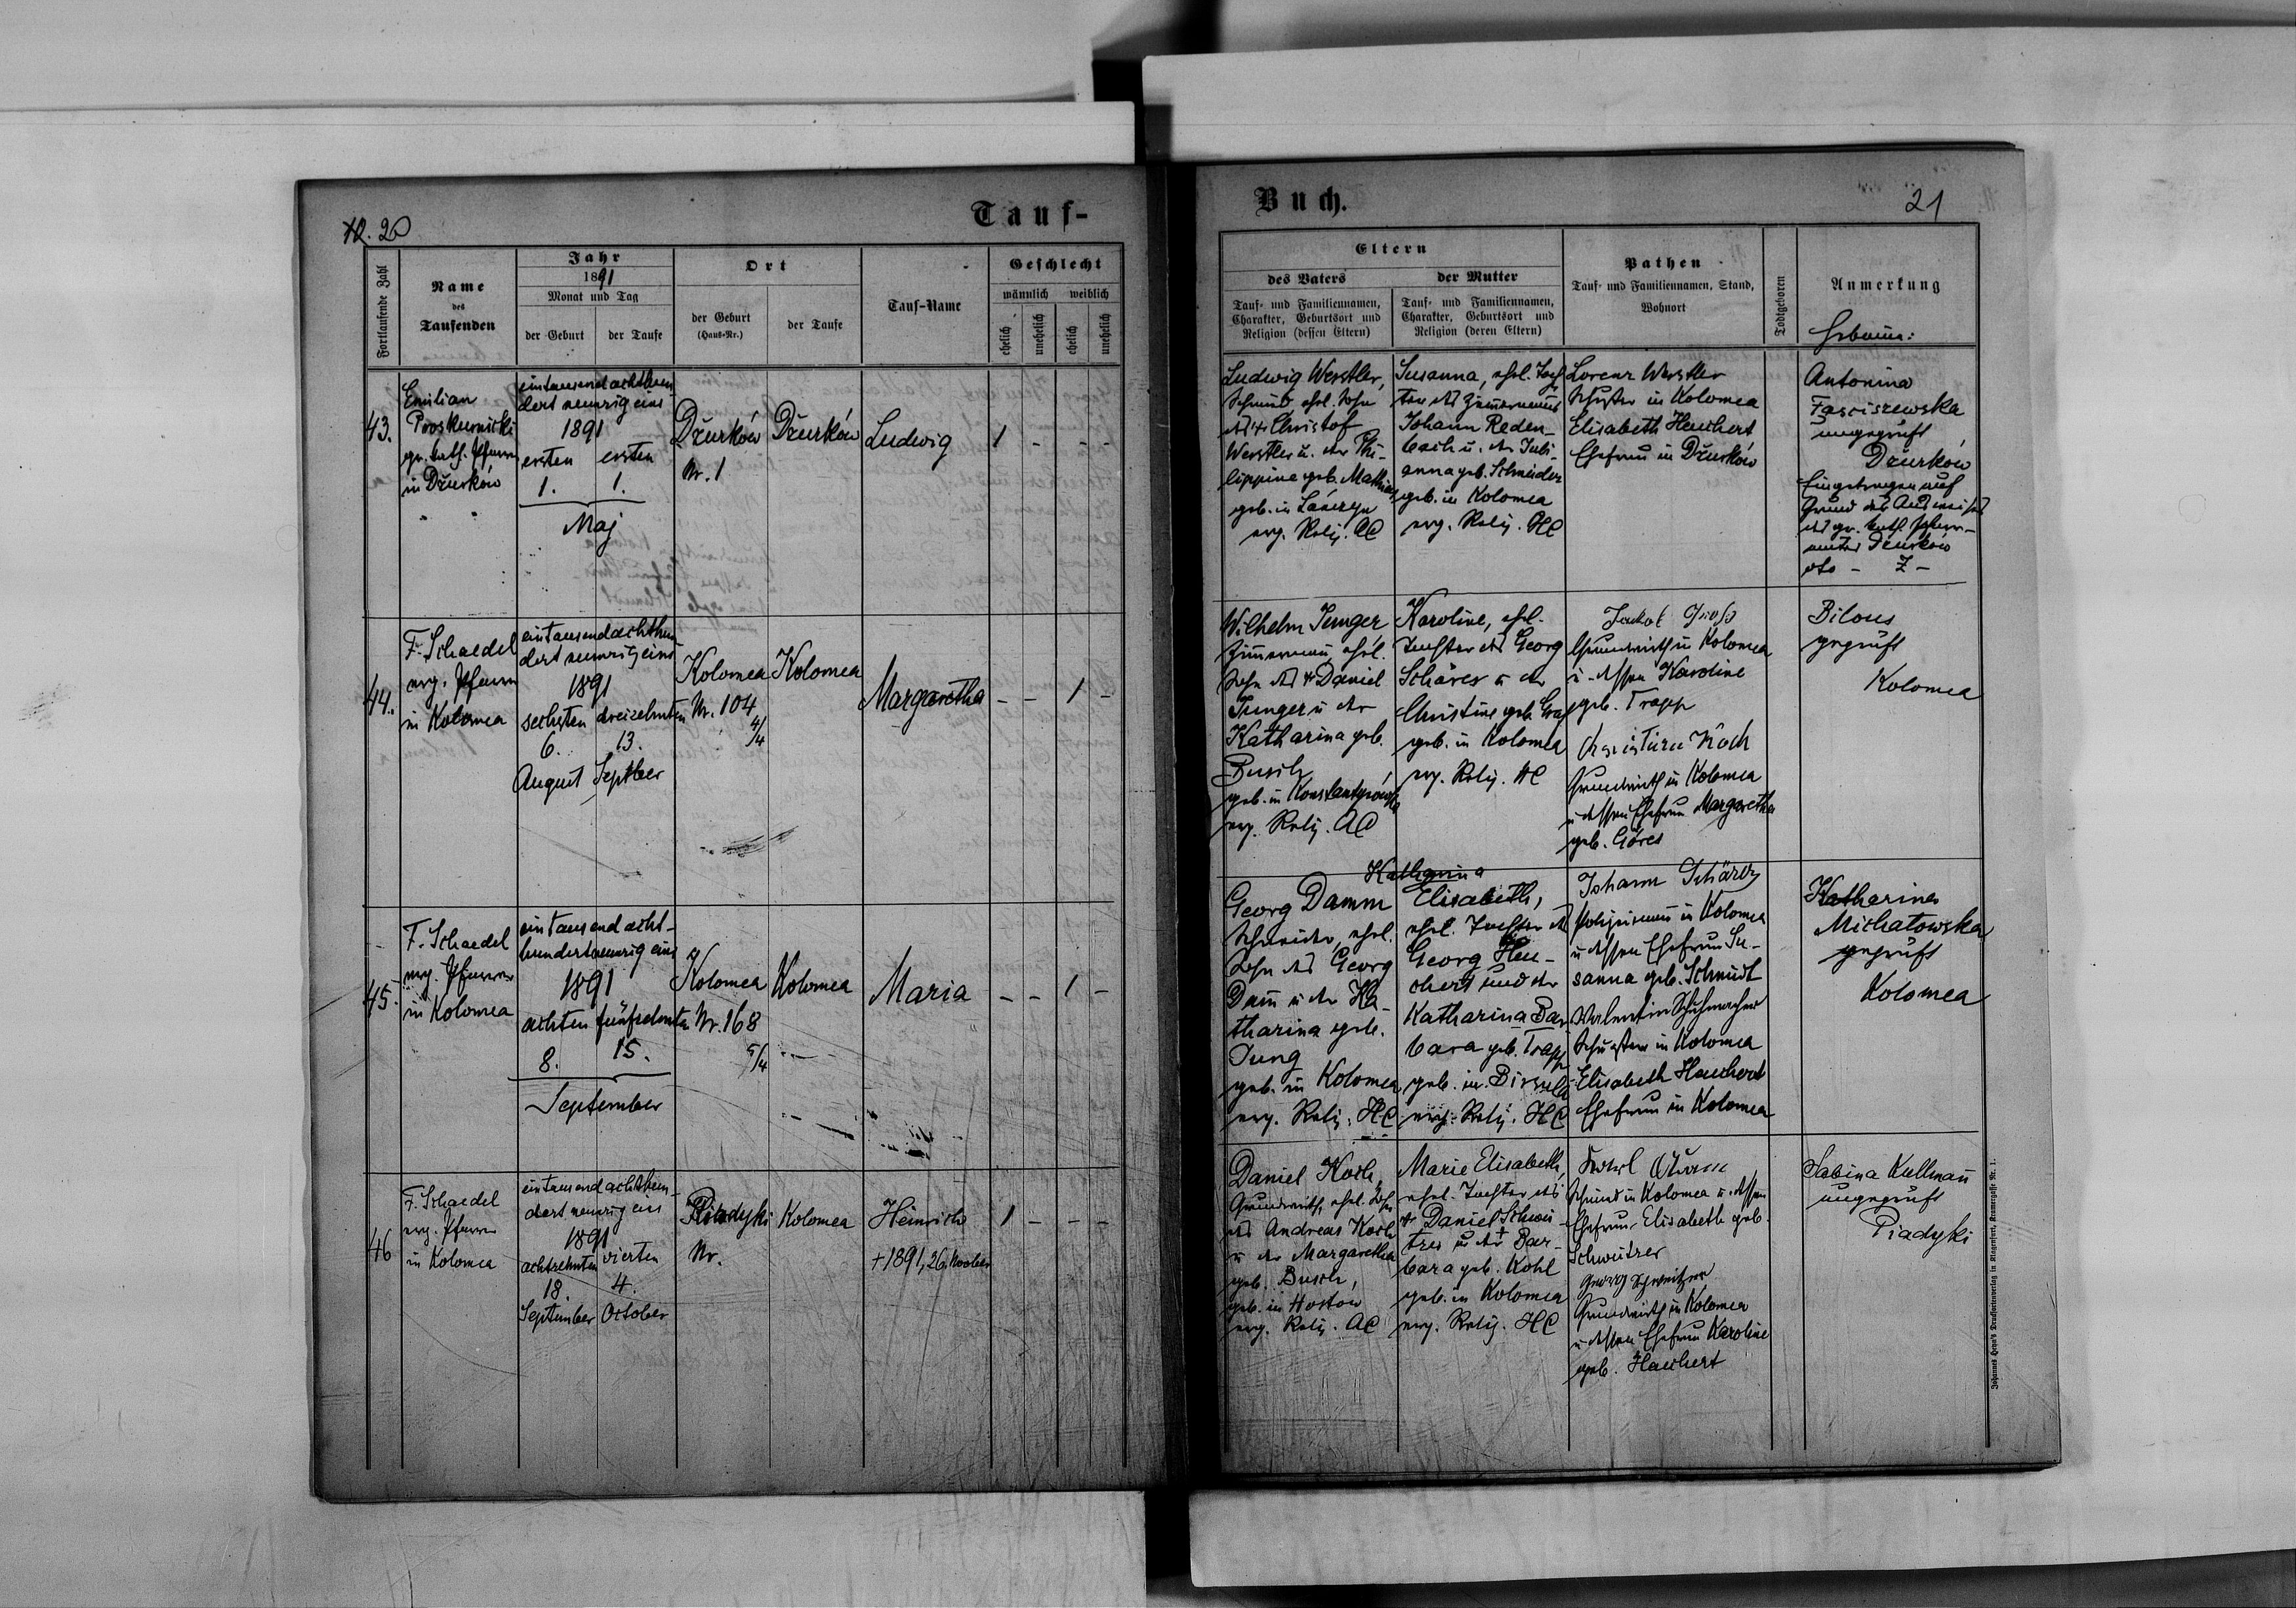 Tauf-
Buch.
20
21
Fortlaufende Zahl
Name
des
Taufenden
Jahr
1891
Monat und Tag
der Geburt
der Taufe
Ort
der Geburt
(Haus-Nr.)
der Taufe
Tauf-Name
Geschlecht
männlich
weiblich
ehelich
unehelich
ehelich
unehelich
Eltern
des Vaters
Tauf- und Familiennamen,
Charakter, Geburtsort und
Religion (dessen Eltern)
der Mutter
Tauf- und Familiennamen,
Charakter, Geburtsort und
Religion (deren Eltern)
Pathen
Tauf- und Familiennamen, Stand,
Wohnort
Todtgeboren
Anmerkung
Hebamme:
43.
Emilian
gr. kath. Pfarrer
in Dżurków
eintausendachthun-
dert neunzig eins
1891
ersten ersten
1. 1.
Maj
Dżurków
Nr. 1
Dżurków
Ludwig
1 - - -
Ludwig Werstler,
Schmid ehel. Sohn
des + Christof
Werstler u. der Phi-
lippine geb. Mathias
geb. in
evg. Relig. AC
Susanna, ehel. Toch-
ter des Zimermanns
Johann Reden-
bach u. der Juli-
anna geb. Schneider
geb. in Kolomea
evg. Relig. HC
Lorenz Werstler
Schuster in Kolomea
Elisabeth Hauchert
Ehefrau in Dżurków
Antonina
Fasciszewska
ungeprüft
Dżurków
Eingetragen auf
Grund des Ausweises
des gr. kath. Pfarr-
amtes Dżurków
44.
F. Schaedel
evg. Pfarrer
in Kolomea
eintausendachthun-
dert neunzig eins
1891
sechsten dreizehnten
6. 13.
August Septber
Kolomea
Nr. 104
4/4
Kolomea
Margaretha
- - 1 -
Wilhelm Junger
Zimermann ehel.
Sohn des + Daniel
Junger u. der
Katharina geb.
Busch
geb. in
evg. Relig. AC
Karoline, ehel.
Tochter des Georg
Schärer u. der
Christine geb. Graf
geb. in Kolomea
evg. Relig. HC
Jakob Groß
Grundwirth in Kolomea
u. dessen Karoline
geb. Trapp
Koch
Grundwirth in Kolomea
u. dessen Ehefrau Margaretha
geb. Göres
Bilous
geprüft
Kolomea
45.
F. Schaedel
evg. Pfarrer
in Kolomea
eintausendacht-
hundertneunzig eins
1891
achten fünfzehnten
8. 15.
September
Kolomea
Nr. 168
5/4
Kolomea
Maria
- - 1 -
Georg Damm
Schneider, ehel.
Sohn des Georg
Dam u. der Ka-
tharina geb.
Jung
geb. in Kolomea
evg. Relig. HC
Katharina
Elisabeth,
ehel. Tochter des
Georg Hau-
chert und der
Katharina Bar-
bara geb. Trapp
geb. in
evg. Relig. HC
Johann Schärer
in Kolomea
u. dessen Ehefrau Su-
sanna geb. Schmidt
Valentin Schuhmacher
Schuster in Kolomea
Elisabeth Hauchert
Ehefrau in Kolomea
Katharina
Michatowska
geprüft
Kolomea
46
F. Schaedel
evg. Pfarrer
in Kolomea
eintausendachthun-
dert neunzig eins
1891
achtzehnten vierten
18. 4.
September October
Piadyki
Nr.
Kolomea
Heinrich
+ 1891, 26. Novber
1 - - -
Daniel Koch,
Grundwirth, ehel. Sohn
des Andreas Koch
u. der Margaretha
geb. Busch,
geb. in Hostow
evg. Relig. AC
Marie Elisabeth,
ehel. Tochter des
+ Daniel Schwei-
tzer u. der + Bar-
bara geb. Kohl
geb. in Kolomea
evg. Relig. HC
Karl
Schmid in Kolomea u. dessen
Ehefrau Elisabeth geb.
Schweitzer
Georg Schweitzer
Grundwirth in Kolomea
u. dessen Ehefrau Karoline
geb. Hauchert
Sabina Kullmann
ungeprüft
Piadyki